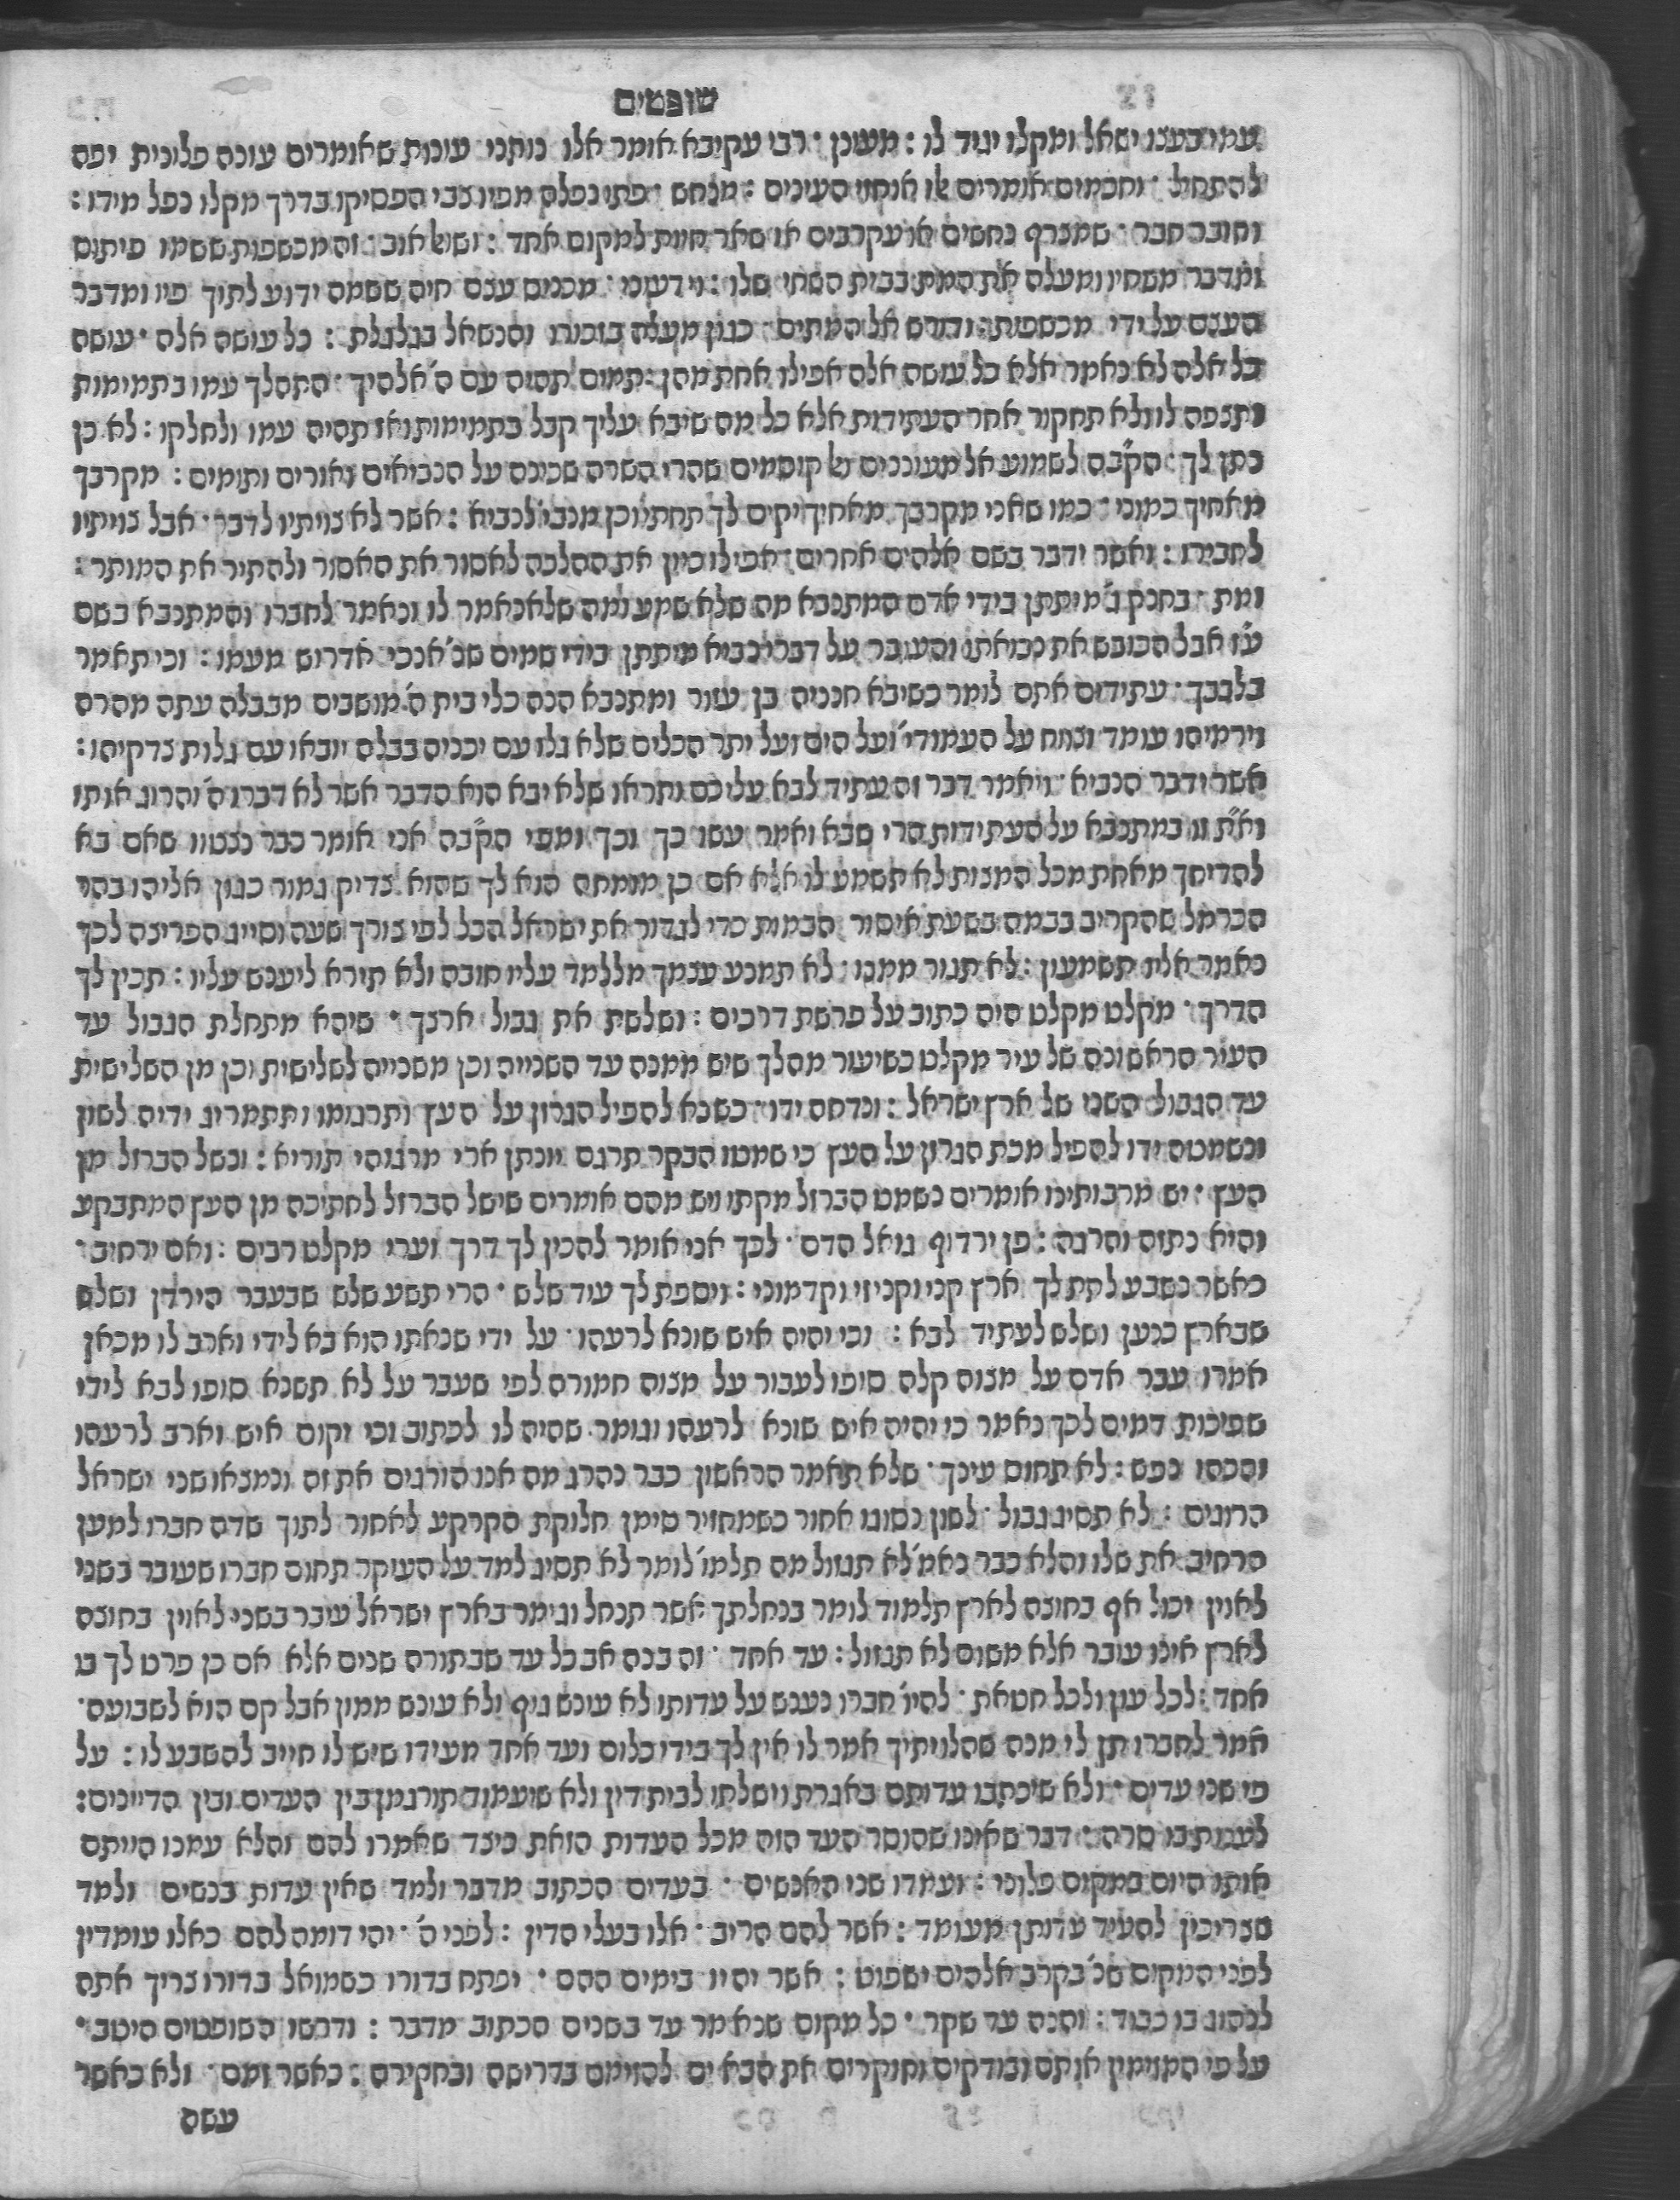 שופטים
עמי בעצו ישאל ומקלו יגיד לו : מעונן · רבי עקיבא אומר אלו נותני עונות שאומרים עונה פלונית יפה
להתחיל · וחכמים אומרים אלו אוחזי העינים : מנחש · פתו נפלה מפיו צבי הפסיקו בדרך מקלו נפל מידו :
וחובר חבר · שמצרף נחשים או עקרבים או שאר חיות למקום אחד : ושואל אוב · זה מכשפות ששמו פיתום
ומדבר משחיו ומעלה את המת בבית השחי שלו : וידעוני · מכניס עצם חיה ששמה ידוע לתוך פיו ומדבר
העצם על ידי מכשפות : ודורש אל המתים · כגון מעלה בזכורו והנשאל בגלגלת : כל עושה אלה · עושה
כל אלה לא נאמר אלא כל עושה אלה אפילו אחת מהן : תמים תהיה עם ה' אלהיך · התהלך עמו בתמימות
ותצפה לו ולא תחקור אחר העתידות אלא כל מה שיבא עליך קבל בתמימות ואז תהיה עמו ולחלקו : לא כן
נתן לך · הק"בה לשמוע אל מעוננים ואל קוסמים שהרי השרה שכינה על הנביאים ואורים ותומים : מקרבך
מאחיך כמוני · כמו שאני מקרבך מאחיך יקים לך תחתי וכן מנביא לנביא : אשר לא צויתיו לדבר · אבל צויתיו
לחבירו : ואשר ידבר בשם אלהים אחרים · אפילו כיון את ההלכה לאסור את האסור ולהתיר את המותר :
ומת · בחנק ג' מיתתן בידי אדם המתנבא מה שלא שמע ומה שלא נאמר לו ונאמר לחברו והמתנבא בשם
ע"ז אבל הכובש את נבואתו והעובר על דברי נביא מיתתן בידי שמים שנ' אנכי אדרוש מעמו : וכי תאמר
בלבבך · עתידים אתם לומר כשיבא חנניה בן עזור ומתנבא הנה כלי בית ה' מושבים מבבלה עתה מהרה
וירמיהו עומד וצווח על העמודי' ועל הים ועל יתר הכלים שלא גלו עם יכניה בבלה יובאו עם גלות צדקיהו :
אשר ידבר הנביא · ויאמר דבר זה עתיד לבא עליכם ותראו שלא יבא הוא הדבר אשר לא דברו ה' והרוג אותו
וא"ת זו במתנבא על העתידות הרי שבא ואמר עשו כך וכך ומפי הק"בה אני אומר כבר נצטוו שאם בא
להדיחך מאחת מכל המצות לא תשמע לו אלא אם כן מומחה הוא לך שהוא צדיק גמור כגון אליהו בהר
הכרמל שהקריב בבמה בשעת איסור הבמות כדי לגדור את ישראל הכל לפי צורך שעה וסייג הפריצה לכך
נאמר אליו תשמעון : לא תגור ממנו · לא תמנע עצמך מללמד עליו חובה ולא תירא ליענש עליו : תכין לך
הדרך · מקלט מקלט היה כתוב על פרשת דרכים : ושלשת את גבול ארצך · שיהא מתחלת הגבול עד
העיר הראשונה של עיר מקלט כשיעור מהלך שיש ממנה עד השנייה וכן משנייה לשלישית וכן מן השלישית
עד הגבול השני של ארץ ישראל : ונדחה ידו · כשבא להפיל הגרזן על העץ ותרגומו ותתמריג ידיה לשון
ונשמטה ידו להפיל מכת הגרזן על העץ כי שמטו הבקר תרגם יונתן ארי מרגוהי תוריא : ונשל הברזל מן
העץ · יש מרבותינו אומרים נשמט הברזל מקתו ויש מהם אומרים שישל הברזל לחתיכה מן העץ המתבקע
והיא נתזה והרגה : פן ירדוף גואל הדם · לכך אני אומר להכין לך דרך וערי מקלט רבים : ואם ירחיב ·
כאשר נשבע לתת לך ארץ קני וקניזי וקדמוני : ויספת לך עוד שלש · הרי תשע שלש שבעבר הירדן ושלש
שבארץ כנען ושלש לעתיד לבא : וכי יהיה איש שונא לרעהו · על ידי שנאתו הוא בא לידי וארב לו מכאן
אמרו עבר אדם על מצוה קלה סופו לעבור על מצוה חמורה לפי שעבר על לא תשנא סופו לבא לידי
שפיכות דמים לכך נאמר כי יהיה איש שונא לרעהו וגומר שהיה לו לכתוב וכי יקום איש וארב לרעהו
והכהו נפש : לא תחוס עינך · שלא תאמר הראשון כבר נהרג מה אנו הורגים את זה ונמצאו שני ישראל
הרוגים : לא תסיג גבול · לשון נסוגו אחור כשמחזיר סימן חלוקת הקרקע לאחור לתוך שדה חברו למען
הרחיב את שלו והלא כבר נאמ' לא תגזול מה תלמו' לומר לא תסיג למד על העוקר תחום חברו שעובר בשני
לאוין יכול אף בחוצה לארץ תלמוד לומר בנחלתך אשר תנחל וגומר בארץ ישראל עובר בשני לאוין בחוצה
לארץ אינו עובר אלא משום לא תגזול : עד אחד · זה בנה אב כל עד שבתורה שנים אלא אם כן פרט לך בו
אחד : לכל עון ולכל חטאת · להיו' חברו נענש על עדותו לא עונש גוף ולא עונש ממון אבל קם הוא לשבועה ·
אמר לחברו תן לי מנה שהלויתיך אמר לו אין לך בידי כלום ועד אחד מעידו שיש לו חייב להשבע לו : על
פי שני עדים · ולא שיכתבו עדותם באגרת וישלחו לבית דין ולא שיעמוד תורגמן בין העדים ובין הדיינים :
לענות בו סרה · דבר שאינו שהוסר העד הזה מכל העדות הזאת כיצד שאמרו להם והלא עמנו הייתם
אותו היום במקום פלוני : ועמדו שני האנשים · בעדים הכתוב מדבר ולמד שאין עדות בנשים ולמד
שצריכין להעיד עדותן מעומד : אשר להם הריב · אלו בעלי הדין : לפני ה' · יהי דומה להם כאלו עומדין
לפני המקום שנ' בקרב אלהים ישפוט : אשר יהיו בימים ההם · יפתח בדורו כשמואל בדורו צריך אתה
לנהוג בו כבוד : והנה עד שקר · כל מקום שנאמר עד בשנים הכתוב מדבר : ודרשו השופטים היטב ·
על פי המזימין אותם ובודקים וחוקרים את הבאים להזימם בדרישה ובחקירה : כאשר זמם · ולא כאשר
עשה